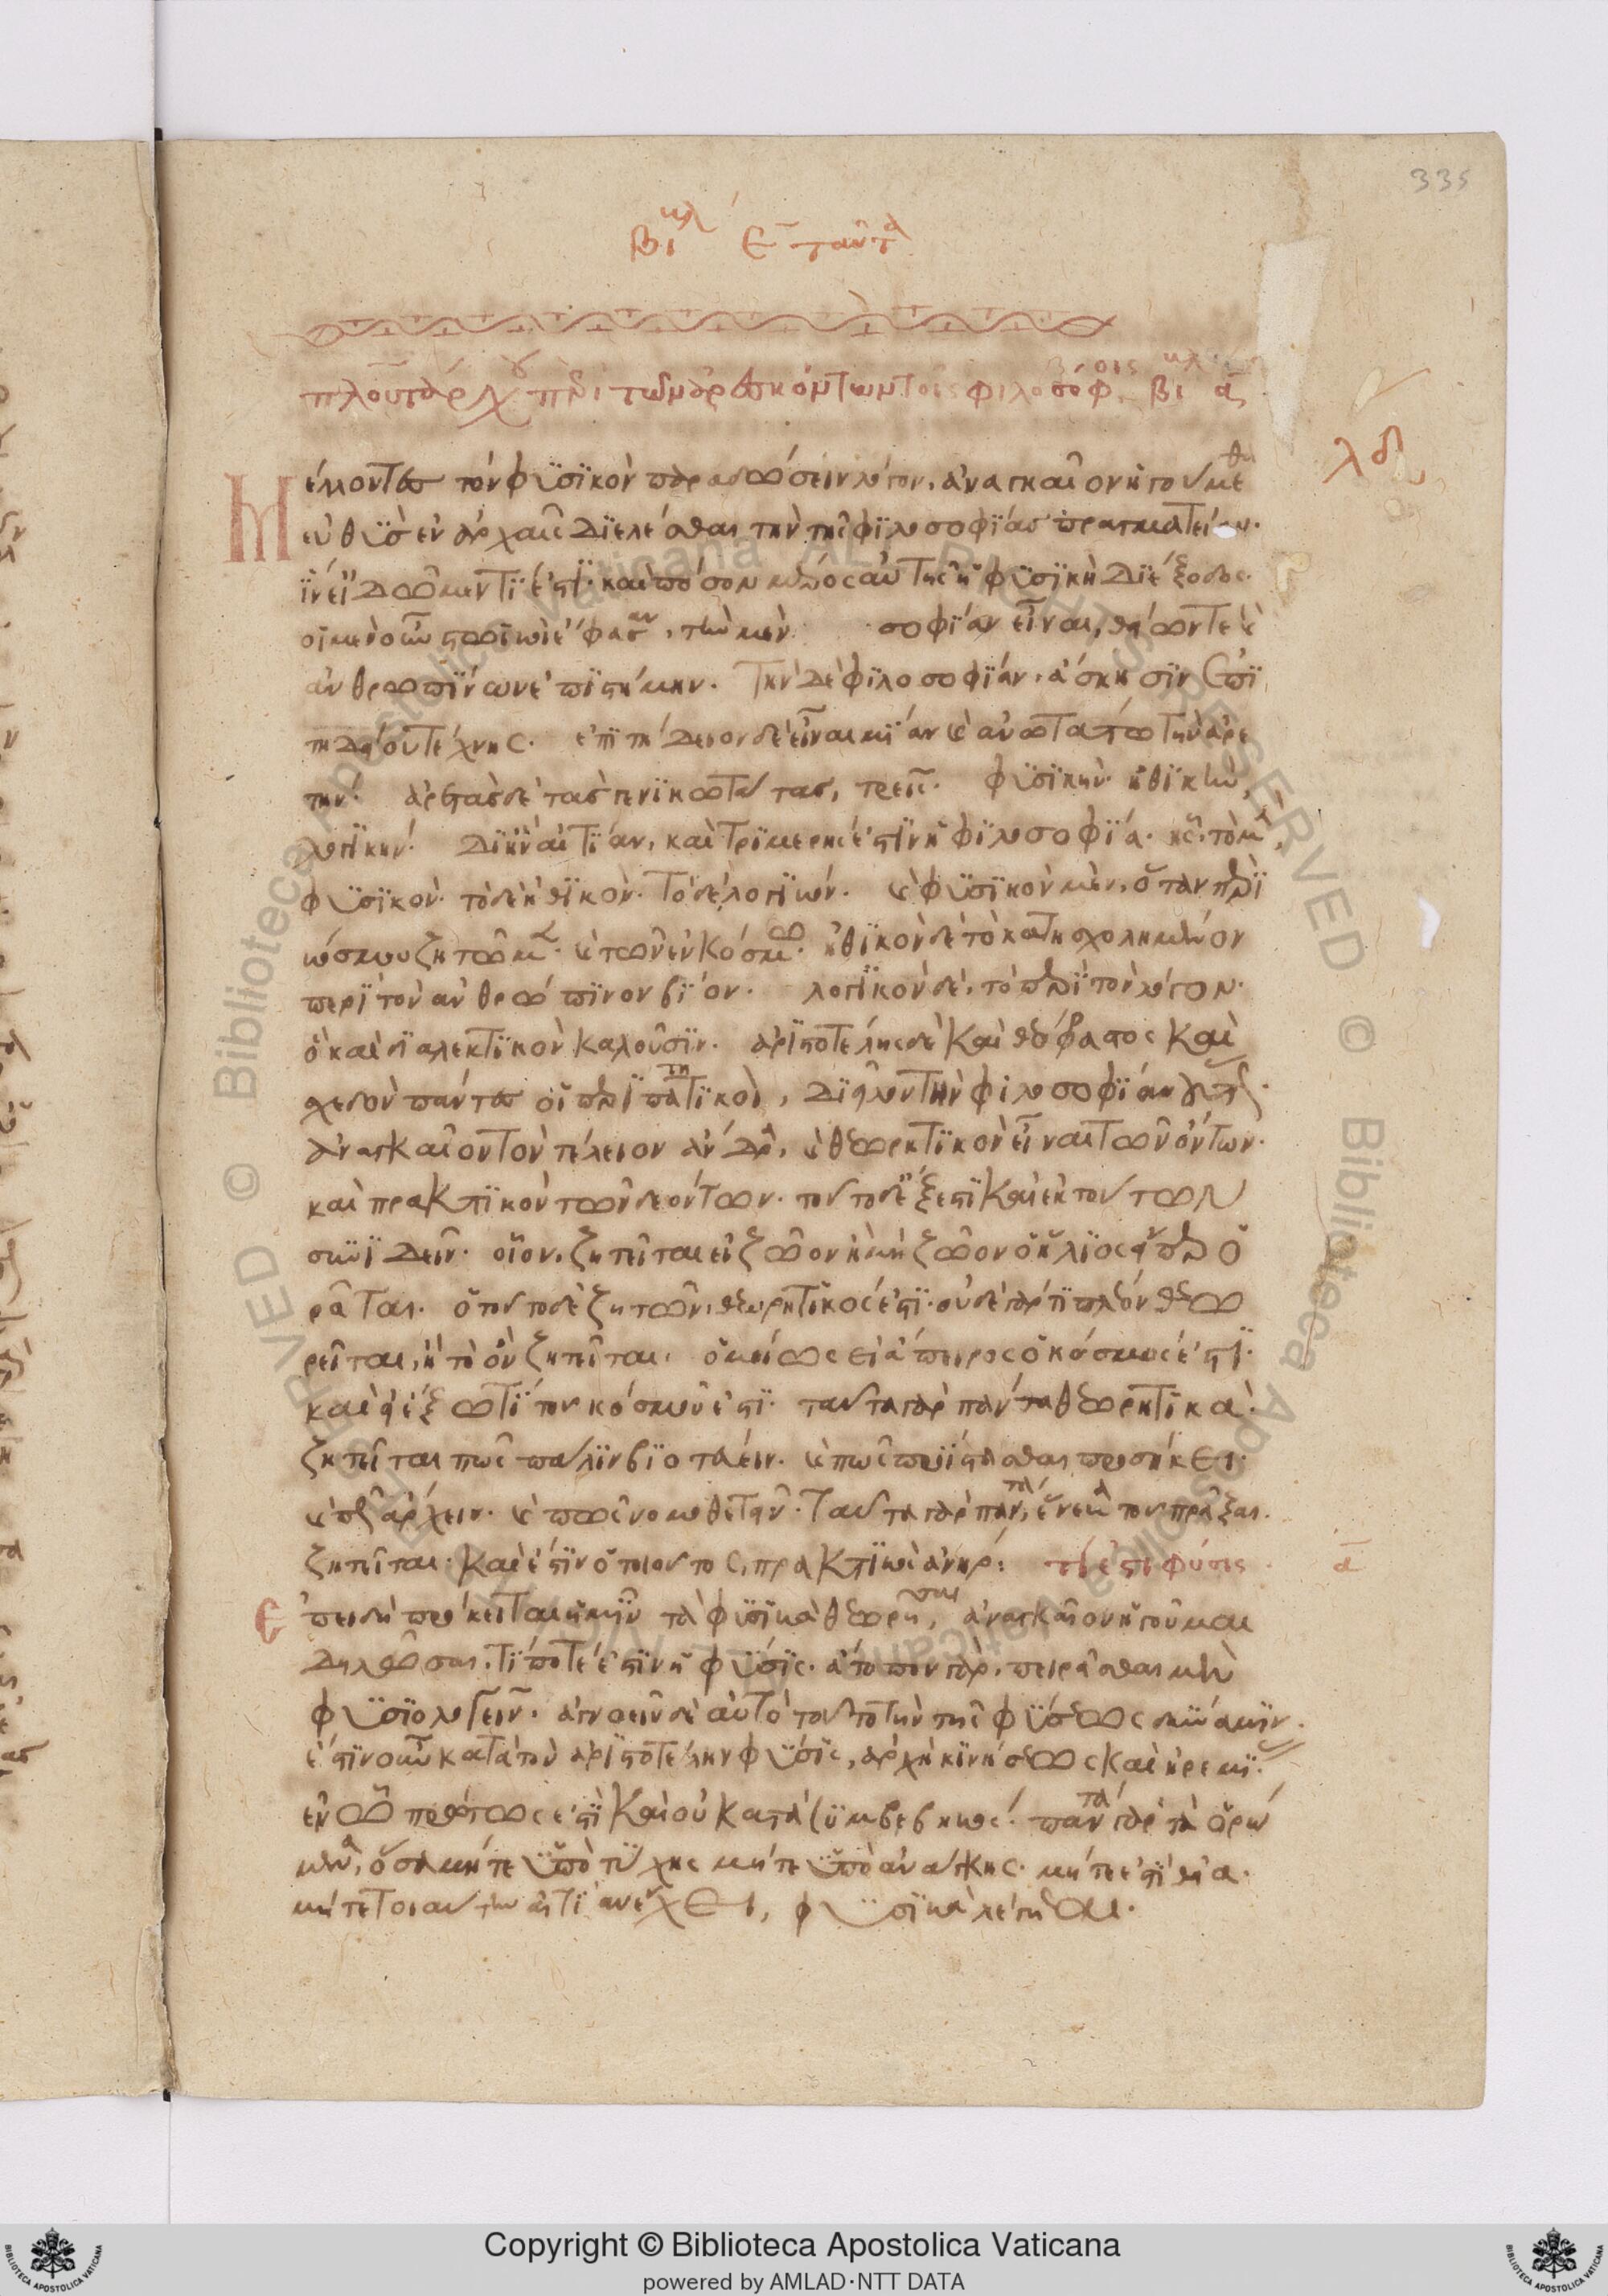 335
βι ε ταῦτα
πλουτάρχου περὶ τῶν ἀρεσκόντων τοῖς φιλοσόφοις βι α
λδ
Μέλλοντες τὸν φυσικὸν παραδώσειν λόγον, ἀναγκαῖον ἡγούμεθα
εὐθὺς ἐν ἀρχαῖς διελέσθαι τὴν τῆς φιλοσοφίας πραγματείαν.
ἵν' εἰδῶμεν τί ἐστι. καὶ πόσον μέρος αὐτῆς ἡ φυσικὴ διέξοδος.
οἱ μὲν οὖν στωικοὶ ἔφασαν, τὴν μὲν σοφίαν εἶναι, θείων τε καὶ
ἀνθρωπίνων ἐπιστήμην. Τὴν δὲ φιλοσοφίαν, ἄσκησιν ἐπι
τηδείου τέχνης. ἐπιτήδειον δὲ εἶναι μίαν καὶ ἀνωτάτω τὴν ἀρε
τήν. ἀρετὰς δὲ τὰς γενικωτάτας, τρεῖς. φυσικὴν. ἠθικὴν,
λογικήν. Δι' ἣν αἰτίαν, καὶ τριμερής ἐστιν ἡ φιλοσοφία. ἧς, τὸ μὲν,
φυσικόν. τὸ δὲ ἠθικόν. Τὸ δὲ λογικόν. καὶ φυσικὸν μὲν, ὅταν περὶ
κόσμου ζητῶμεν. καὶ τῶν ἐν κόσμω. ἠθικὸν δὲ τὸ κατησχολημένον
περὶ τὸν ἀνθρώπινον βίον. λογικὸν δὲ, τὸ περὶ τὸν λόγον.
ὃ καὶ διαλεκτικὸν καλοῦσιν. ἀριστοτέλης δὲ καὶ θεόφραστος καὶ
σχεδὸν πάντες οἱ περιπατητικοὶ, διεῖλον τὴν φιλοσοφίαν οὕτως.
ἀναγκαῖον τὸν τέλειον ἄνδρα, καὶ θεωρητικὸν εἶναι τῶν ὄντων.
καὶ πρακτικὸν τῶν δεόντων. τοῦτο δὲ ἔξεστι καὶ ἐκ τούτων
συνιδεῖν. οἷον, ζητεῖται εἰ ζῶον ἢ μὴ ζῶον ὁ ἥλιος εἴπερ ὁ
ρᾶται. ὁ τοῦτο δὲ ζητῶν, θεωρητικός ἐστι. οὐδὲ γάρ τι πλέον θεω
ρεῖται, ἢ τὸ ὂν ζητεῖται. ὁμοίως εἰ ἄπειρος ὁ κόσμος ἐστὶ.
καὶ εἰ ἔξω τι τοῦ κόσμου ἐστι. ταῦτα γὰρ πάντα θεωρητικά.
ζητεῖται πῶς πάλιν βιοτεύειν. καὶ πῶς προΐστασθαι προσήκει.
καὶ πῶς ἄρχειν. καὶ πῶς νομοθετεῖν. Ταῦτα γὰρ πάντα, ἕνεκα τοῦ πρᾶξαι.
ζητεῖται. καὶ ἔστιν ὁ τοιοῦτος, πρακτικὸς ἀνήρ: τί ἐστι φύσις α
Ἐπειδὴ πρόκειται ἡμῖν τὰ φυσικὰ θεωρῆσαι, ἀναγκαῖον ἡγοῦμαι
δηλῶσαι, τί ποτέ ἐστιν ἡ φύσις. ἄτοπον γὰρ, πειρᾶσθαι μὲν
φυσιολογεῖν. ἀγνοεῖν δὲ αὐτὸ τοῦτο τὴν τῆς φύσεως δύναμιν.
ἔστιν οὖν κατὰ τὸν ἀριστοτέλην φύσις, ἀρχὴ κινήσεως καὶ ἠρεμίας.
ἐν ᾧ πρώτως ἐστὶ καὶ οὐ κατὰ συμβεβηκός. πάντα γὰρ τὰ ὁρώ
μενα, ὅσα μήτε ὑπὸ τύχης μήτε ὑπὸ ἀνάγκης. μήτε ἐστὶ θεῖα.
μήτε τοιαύτην αἰτίαν ἔχει, φυσικὰ λέγεται.
Copyright © Biblioteca Apostolica Vaticana
powered by AMLAD·NTT DATA